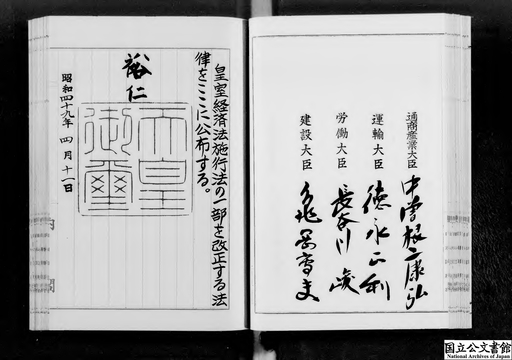 通商産業大臣 中曽根康弘
運輸大臣 徳永正利
労働大臣 長谷川峻
建設大臣 亀岡高夫
皇室経済法施行法の一部を改正する法
律をここに公布する。
裕仁
天皇
御璽
昭和四十九年 四月十一日
国立公文書館
National Archives of Japan